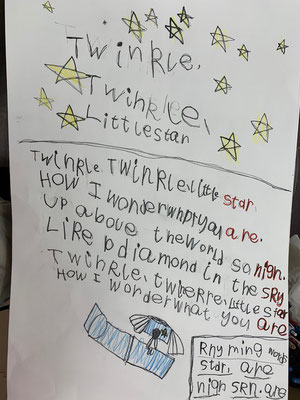 Twinkle,
Twihklee,
Littlestar
Twinkle. Twinkle, little star,
How I wonder whpt you are.
Up above the world so high.
Like p diamond in the sky
Twinkle, twherre, little star
How I wonder what you are
Rhyming words
star, are
nigh SRn. are